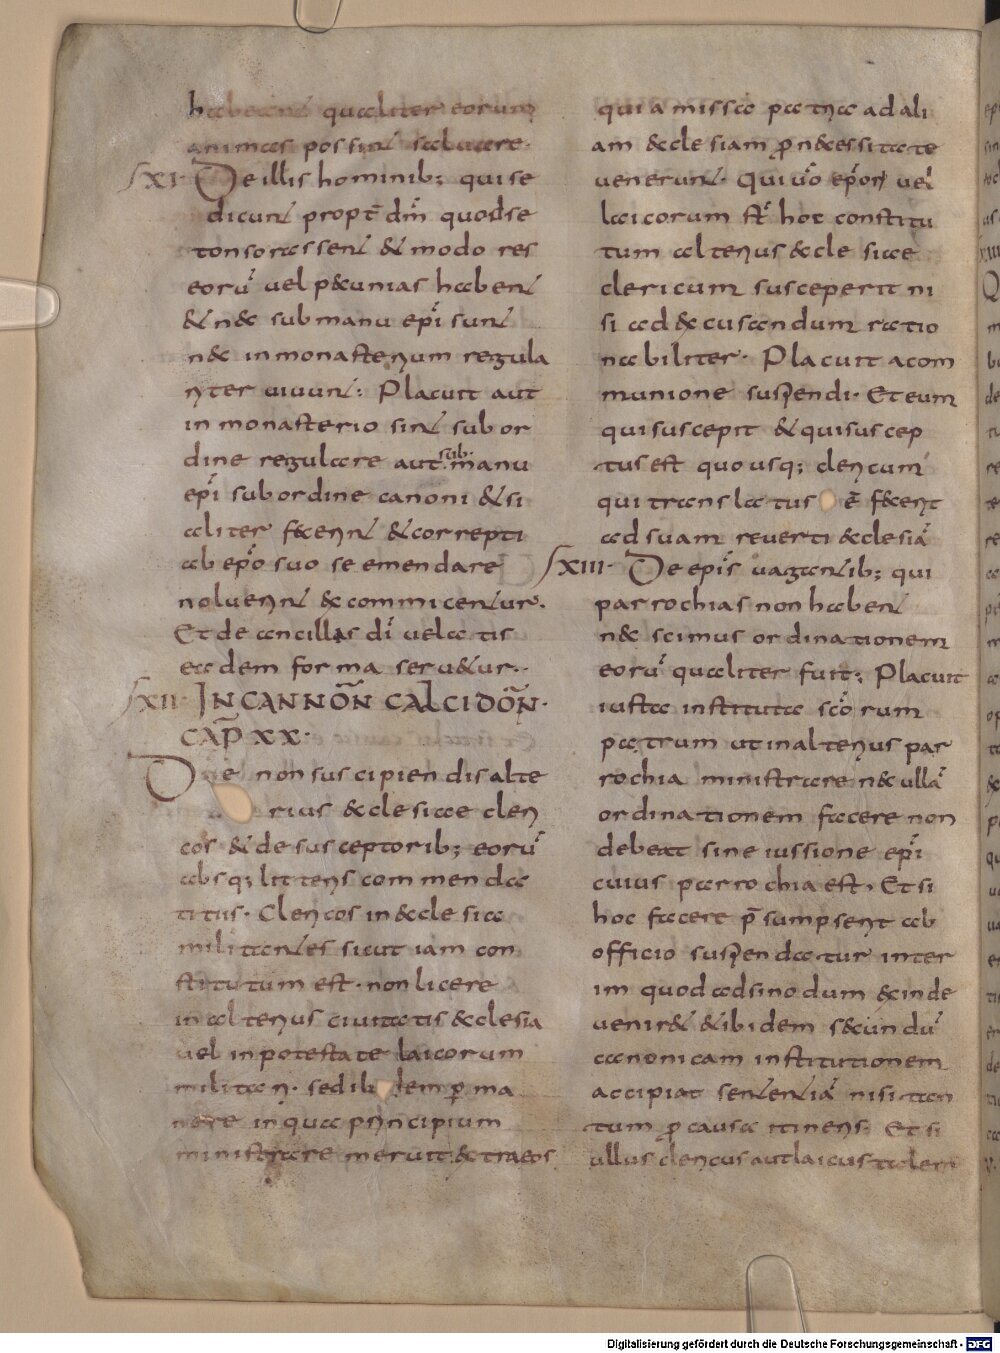 habeant qualiter eorum
animas possint salvare.
XI De illis hominib; qui se
dicunt propt̄ dm̄ quodse
tonsorassent & modo res
eorū vel p&cunias habent
& nec submanu ep̄i sunt
nec in monasterium regula
riter vivunt; Placuit aut
in monasterio sint sub or
dine regulare aut sub manu
ep̄i sub ordine canoni & si
aliter fecerint & correpti
ab ep̄o suo se emendare
noluerint excommicentur.
Et de ancillas dī velatis
eadem forma serv&ur.
XII IN CANNŌN CALCIDOÑ.
CAP̄ XX.
De non suscipiendis alte
rius &clesiae cleri
cos & de susceptorib; eorū
absq; litteris commenda
titus. Clericos in &clesia
militantes sicut iam con
stitutum est. non licere
in alterius civitatis &clesia
vel in potestate laicorum
militari. sed ibidem p̱ma
nere in qua principium
ministrare meruit & traeos
qui amissa patria ad ali
am &clesiam p̱ n&essitate
venerunt. Qui v̄o ep̄or̄ vel
laicorum st̄ hoc constitu
tum alterius &clesiae
clericum susceperit ni
si ad excusandum ratio
nabiliter. Placuit acom
munione suspendi. Et eum
qui suscepit & qui suscep
tus est quousq; clericum
qui translatus ē faceret
ad suam reverti &clesiā
XIII De ep̄is vagantib; qui
parrochias non habent
nec scimus ordinationem
eorū qualiter fuit; Placuit
iusta instituta scōrum
patrum ut in alterius par
rochia ministrare nec ullā
ordinationem facere non
debeat sine iussione ep̄i
cuius parrochia est. Et si
hoc facere p̄sumpserit ab
officio suspendatur inter
im quod ad sinodum exinde
venir& & ibidem s&undū
canonicam institutionem
accipiat sententiā nisi tan
tum p̱ causa itineris. Et si
ullus clericus aut laicus taleri
Digitalisierung gefördert durch die Deutsche Forschungsgemeinschaft - DFG